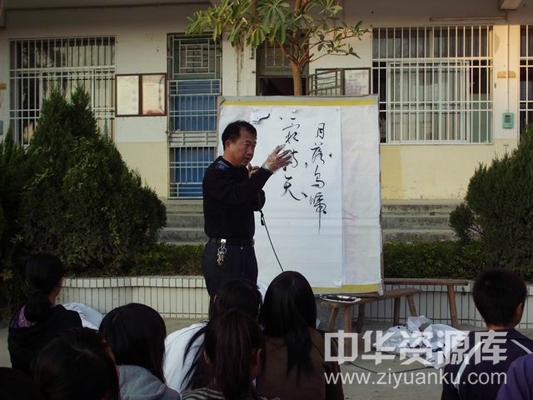 月落乌啼
霜满天
中华资源库
www.ziyuanku.com